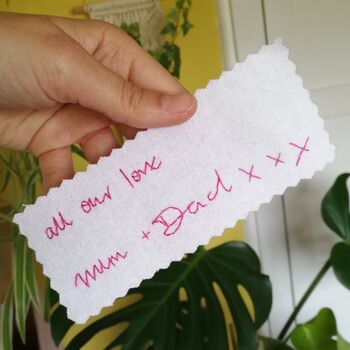 all our love
Mum + Dad x x x